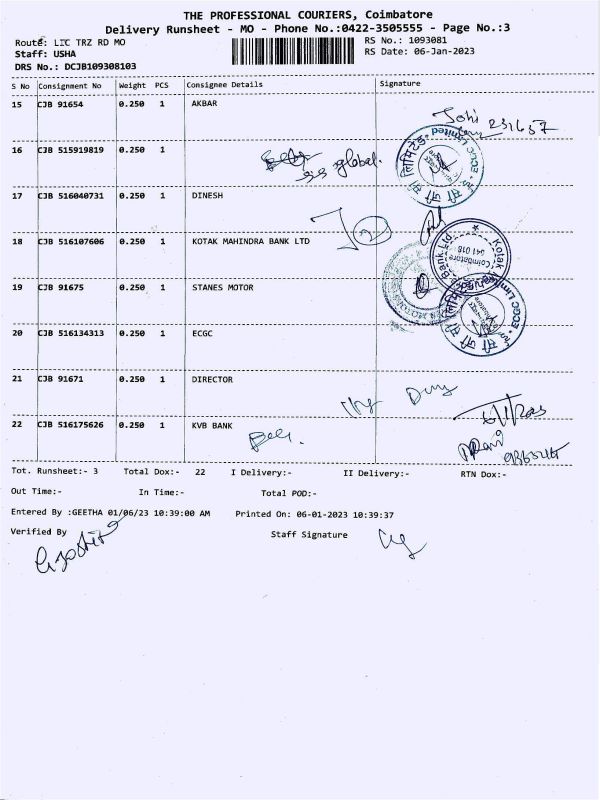 THE PROFESSIONAL COURIERS, Coimbatore
Delivery Runsheet - MO - Phone No.:0422-3505555 - Page No.:3
Route: LIC TRZ RD MO
RS No.: 1093081
Staff: USHA
RS Date: 06-Jan-2023
DRS No.: DCJB109308103
S No Consignment No Weight PCS Consignee Details Signature
15 CJB 91654 0.250 1 AKBAR
16 CJB 515919819 0.250 1
global.
17 CJB 516040731 0.250 1 DINESH
18 CJB 516107606 0.250 1 KOTAK MAHINDRA BANK LTD
Kotak
Bank Ltd
Coimbatore
641 018
19 CJB 91675 0.250 1 STANES MOTOR
ECGC Limited
20 CJB 516134313 0.250 1 ECGC
21 CJB 91671 0.250 1 DIRECTOR
22 CJB 516175626 0.250 1 KVB BANK
Tot. Runsheet:- 3 Total Dox:- 22 I Delivery:- II Delivery:- RTN Dox:-
Out Time:- In Time:- Total POD:-
Entered By :GEETHA 01/06/23 10:39:00 AM Printed On: 06-01-2023 10:39:37
Verified By Staff Signature